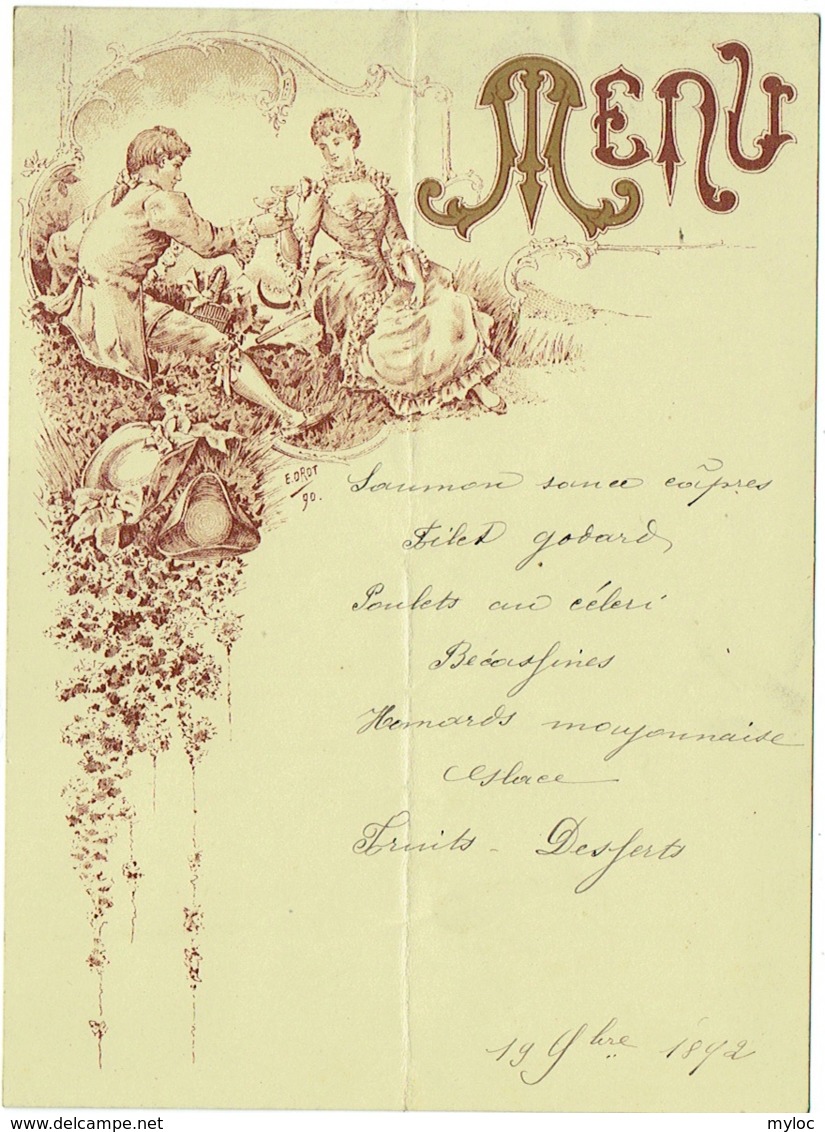 Menu
E. OROT
90.
Saumon sauce câpres
Filet godard
Poulets au céleri
Bécassines
Homards mayonnaise
Glace
Fruits - Desserts
19 9bre 1892
myloc